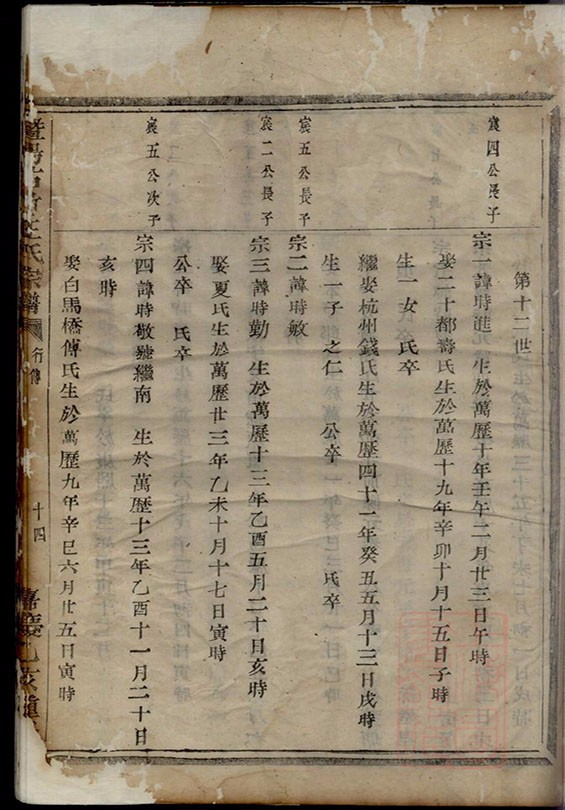 第十二世
寅四公長子
宗一諱時進 生於萬曆十年壬午二月廿三日午時
娶二十都壽氏生於萬曆十九年辛卯十月十五日子時
生一女氏卒
繼娶杭州錢氏生於萬曆四十一年癸丑五月十三日戌時
生一子 之仁 公卒 氏卒
寅五公長子
宗二諱時敏
寅二公長子
宗三諱時勤 生於萬曆十三年乙酉五月二十日亥時
娶夏氏生於萬曆廿三年乙未十月十七日寅時
公卒 氏卒
寅五公次子
宗四諱時敬號繼南 生於萬曆十三年乙酉十一月二十日
亥時
娶白馬橋傅氏生於萬曆九年辛巳六月廿五日寅時
氏宗譜
行傳
十四
嘉慶乙亥